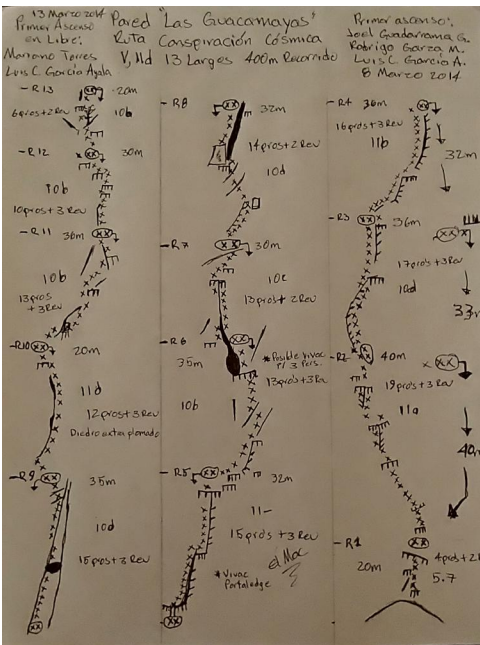 13 Marzo 2014
Primer Ascenso
en Libre:
Mariano Torres
Luis C. García Ayala
Pared "Las Guacamayas"
Ruta Conspiración Cósmica
V, 11d 13 Largos 400m Recorrido
Primer ascenso:
Joel Guadarrama G.
Rodrigo Garza M.
Luis C. García A.
8 Marzo 2014
R13
20m
6pros+2Rev
10b
R12
30m
10b
10pros+3Rev
R11
30m
10b
13pros
+3Rev
R10
20m
11d
12pros+3Rev
Diedro extraplomado
R9
35m
10d
15pros+3Rev
R8
32m
14pros+2Rev
10d
R7
30m
10c
13pros+2Rev
R6
35m
*Posible Vivac
P/3 Pers.
13pros+3Rev
10b
R5
32m
11-
15pros+3Rev
el Moc
*Vivac
Portaledge
R4
36m
16pros+3Rev
11b
32m
R3
36m
17pros+3Rev
10d
33m
R2
40m
19pros+3Rev
11a
40m
R1
20m
4pros+2R
5.7